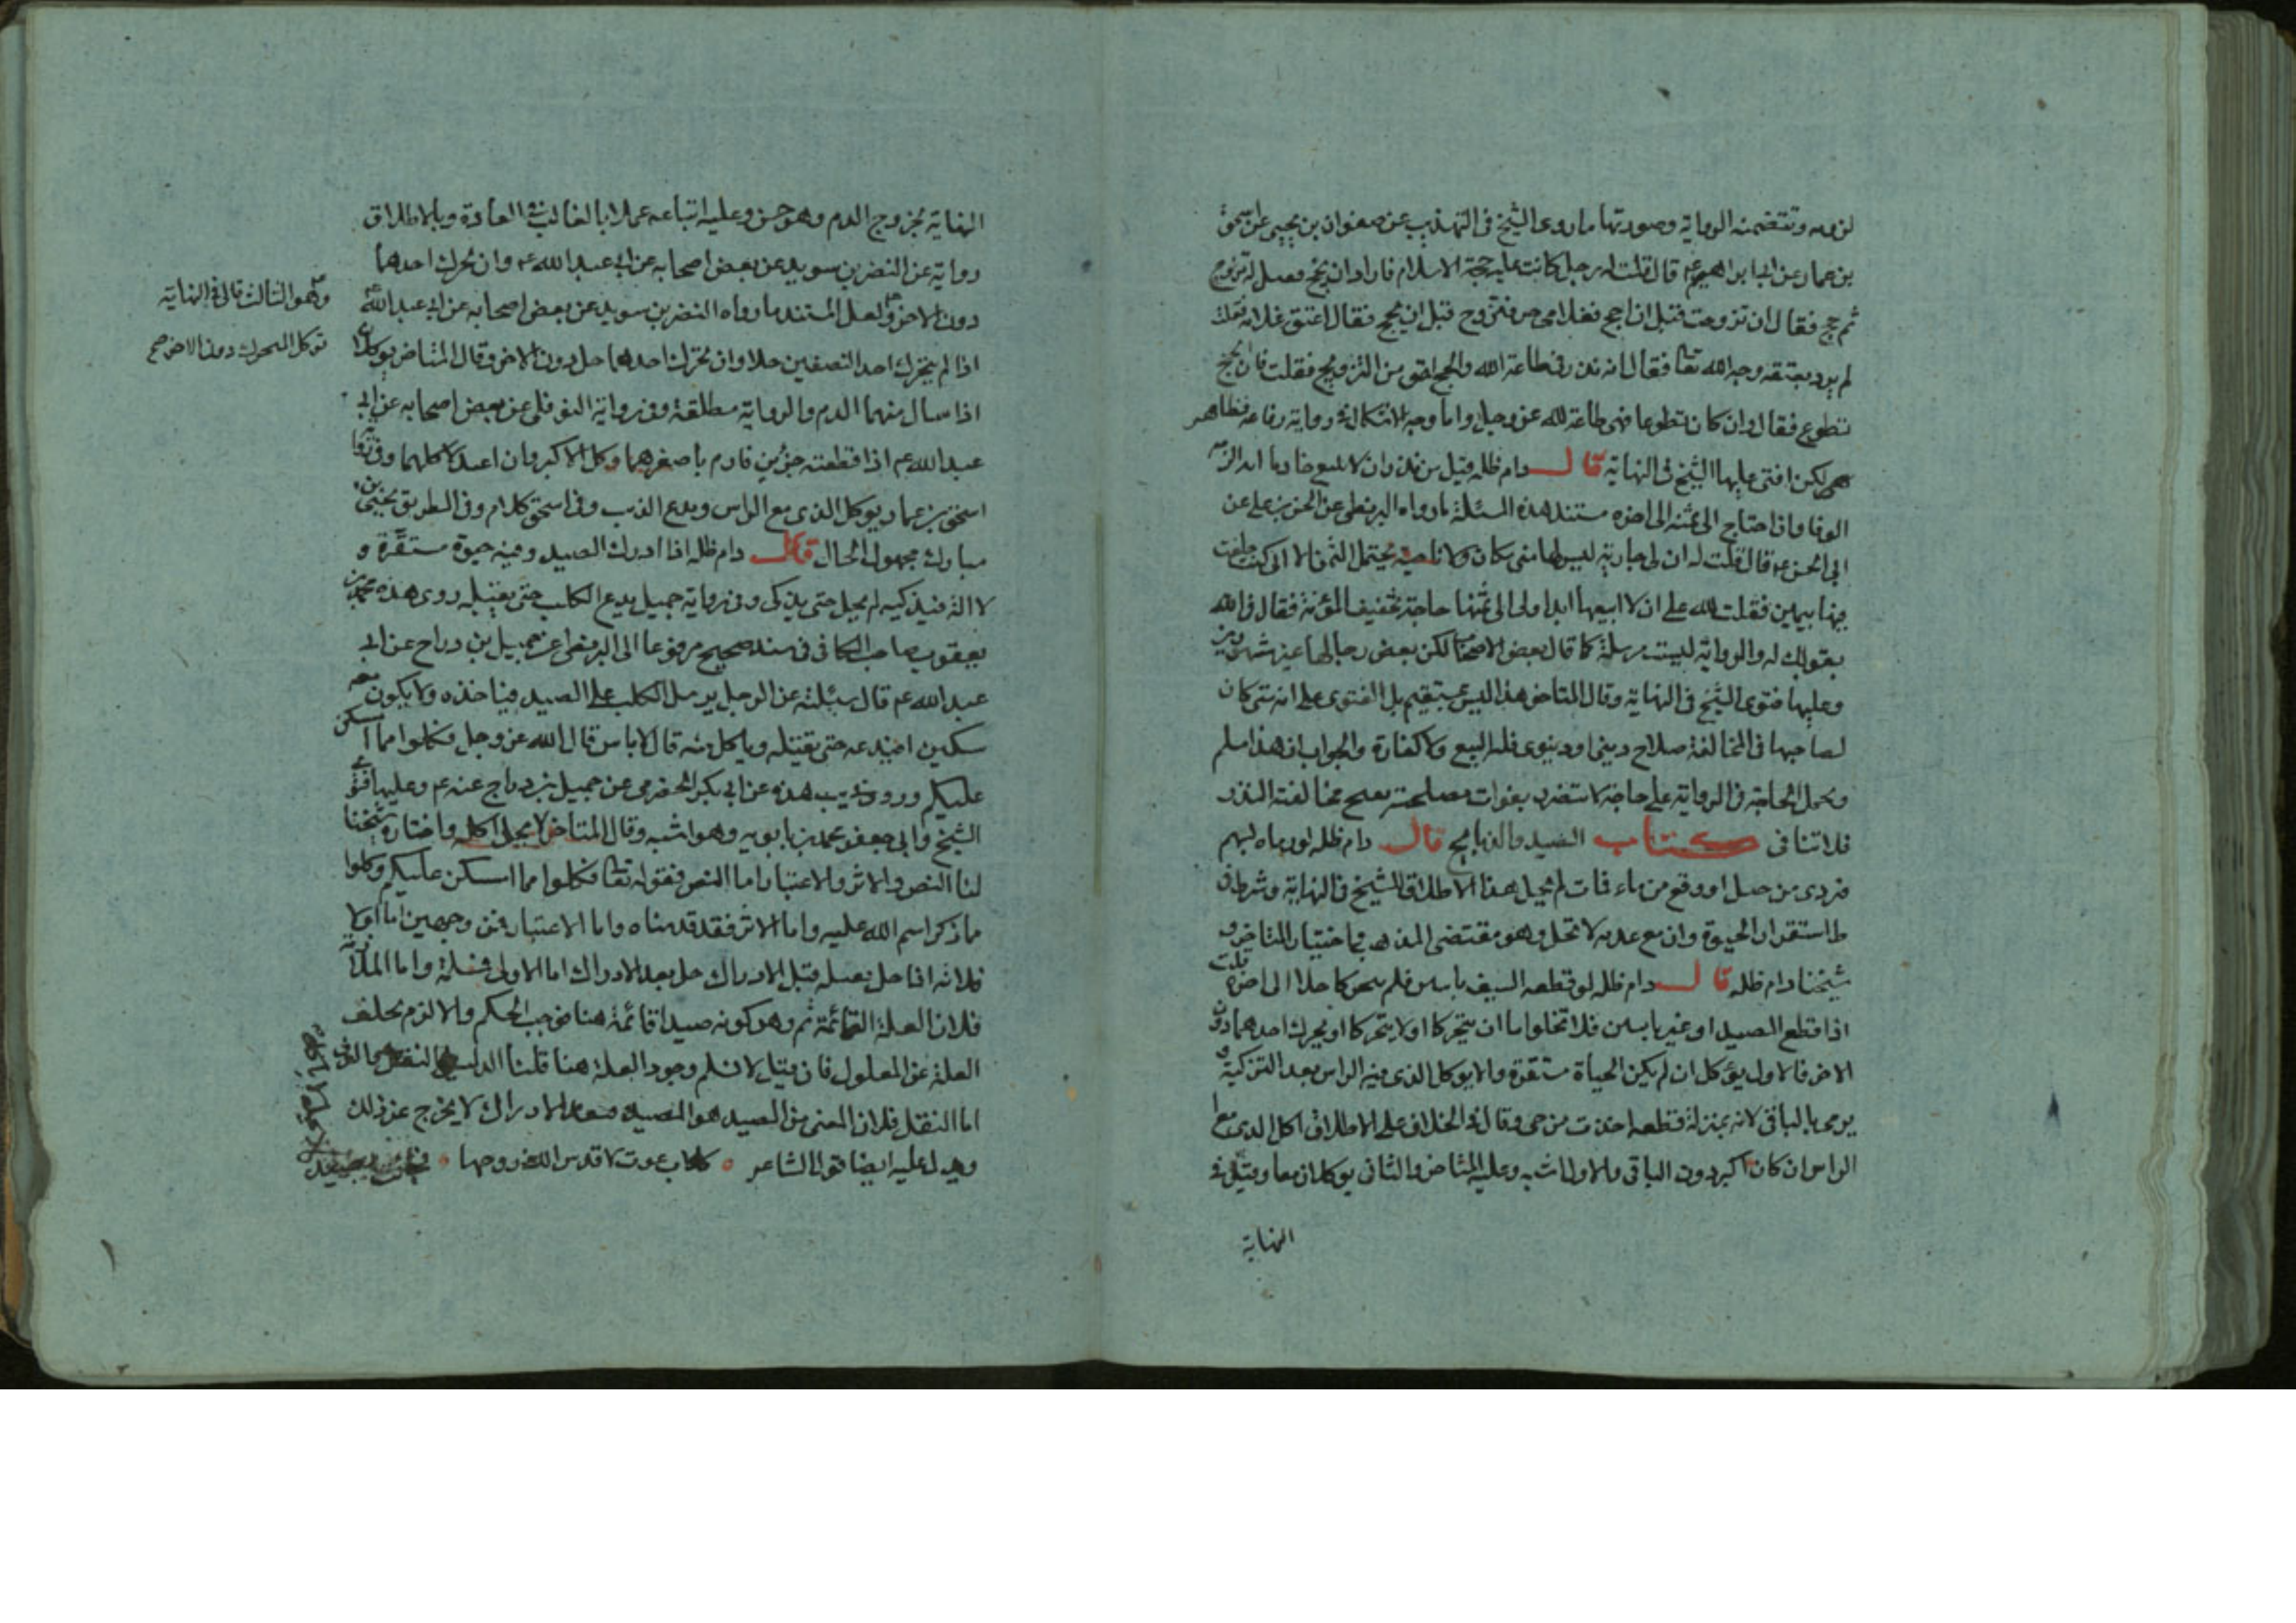 لزومه وتتضمنه الرواية وصورتها ما روى الشيخ فى التهذيب عن صفوان بن يحيى عن اسحق
بن عمار عن ابى ابراهيم ع قال قلت له رجل كانت عليه حجة الاسلام فاراد ان يحج فقيل له تزوج
ثم حج فقال ان تزوجت قبل ان احج فغلامى حر فتزوج قبل ان يحج فقال اعتق غلامه فقلت
لم يرد بعتقه وجه الله تعا فقال انه نذر فى طاعة الله والحج احق من التزويج فقلت فان الحج
تطوع فقال وان كان تطوعا فهى طاعة لله عز وجل واما وجه الاشكال فى رواية رفاعة فظاهر
لكن افتى عليها الشيخ فى النهاية قال دام ظله قيل من نذر ان لا يبيع خادما ابدا لزمه
الوفا وان احتاج الى ثمنه الى اخره مستند هذه المسئلة ما رواه البزنطى عن الحسن بن على عن
ابى الحسن ع قال قلت له ان لى جارية ليس لها منى مكان ولا ناحية يحتمل الثمن الا انى كنت حلفت
فيها بيمين فقلت لله على ان لا ابيعها ابدا ولى الى ثمنها حاجة تخفيف المؤنة فقال ف لله
بقولك له والرواية ليست مرسلة كما قال بعض الاصحاب لكن بعض رجالها غير مشهورين
وعليها فتوى الشيخ فى النهاية وقال المتاخر هذا ليس بمستقيم بل الفتوى على انه متى كان
لصاحبها فى المخالفة صلاح دينى او دنيوى فله البيع ولا كفارة والجواب ان هذا مسلم
ونحمل الحاجة فى الرواية على حاجة لا تستضر بفوات مصلحة يصح مخالفته النذر
فلا تنافى كتاب الصيد والذبايح قال دام ظله لو رماه بسهم
فتردى من جبل او وقع من ماء فمات لم يحل هذا الاطلاق للشيخ فى النهاية وشرط فى
ط استقرار الحيوة وان مع عدمه لا تحل وهو مقتضى المذهب واختيار المتاخر و
شيخنا دام ظله قال دام ظله لو قطعه السيف باثنين فلم يتحركا حلا الى اخره قلت
اذا قطع الصيد او غير باثنين فلا تخلوا اما ان يتحركا او لا يتحركا او يحرك احدهما دون
الاخر فالاول يؤكل ان لم يكن الحياة مستقرة والا يوكل الذى فيه الراس بعد التزكية و
يرمى بالباقى لانه بمنزلة قطعة اخذت من حى وقال فى الخلاف على الاطلاق اكل الذى مع
الراس ان كان اكبر دون الباقى والاول اشبه وعليه المتاخر والثانى يوكلان معا وقيل فى
النهاية
النهاية بخروج الدم وهو حسن وعليه اتباعه عملا بالغالب فى العادة وبالاطلاق
رواية عن النضر بن سويد عن بعض اصحابه عن ابى عبد الله ع وان تحرك احدهما
دون الاخر ولعل المستند ما رواه النضر بن سويد عن بعض اصحابه عن ابى عبد الله ع
اذا لم يتحرك احد النصفين حلا وان تحرك احدهما حل دون الاخر وقال المتاخر يوكلان
اذا سال منهما الدم والرواية مطلقة وفى رواية النوفلى عن بعض اصحابه عن ابى
عبد الله ع اذا قطعته جزئين فارم باصغرهما وكل الاكبر وان اعتدلا كلهما وفى رواية
اسحق بن عمار يوكل الذى مع الراس ويدع الذنب وفى اسحق كلام وفى الطريق يحيى بن
مبارك مجهول الحال قال دام ظله اذا ادرك الصيد وفيه حيوة مستقرة و
لا الة فيذكيه لم يحل حتى يذكى وفى رواية جميل يدع الكلب حتى يقتله روى هذه محمد بن
يعقوب صاحب الكافى فى سند صحيح مرفوعا الى البزنطى عن جميل بن دراج عن ابى
عبد الله ع قال سئلته عن الرجل يرسل الكلب على الصيد فياخذه ولا يكون معه
سكين ايدعه حتى يقتله وياكل منه قال لا باس قال الله عز وجل فكلوا مما امسكن
عليكم وروى قريب هذه عن ابى بكر الحضرمى عن جميل بن دراج عنه ع وعليها فتوى
الشيخ وابى جعفر محمد بن بابويه وهو اشبه وقال المتاخر لا يحل اكله واختاره شيخنا
لنا النص والاثر والاعتبار اما النص فقوله تعا فكلوا مما امسكن عليكم وكلوا
مما ذكر اسم الله عليه واما الاثر فقد قدمناه واما الاعتبار فمن وجهين اما اولا
فلانه اذا حل بقتله قبل الادراك حل بعد الادراك اما الاولى فمسلمة واما الملازمة
فلان العلة القائمة ثم وهو كونه صيدا قائمة هنا فوجب الحكم والا لزم تخلف
العلة عن المعلول فان قيل لا نسلم وجود العلة هنا قلنا الدليل النقل والعرف
اما النقل فلان المعنى من الصيد هو المصيد وبعد الادراك لا يخرج عن ذلك
ويدل عليه ايضا قول الشاعر كلاب عوت لا قدس الله روحها
وهو الثالث قال فى النهاية
توكل المتحرك دون الاخر صح